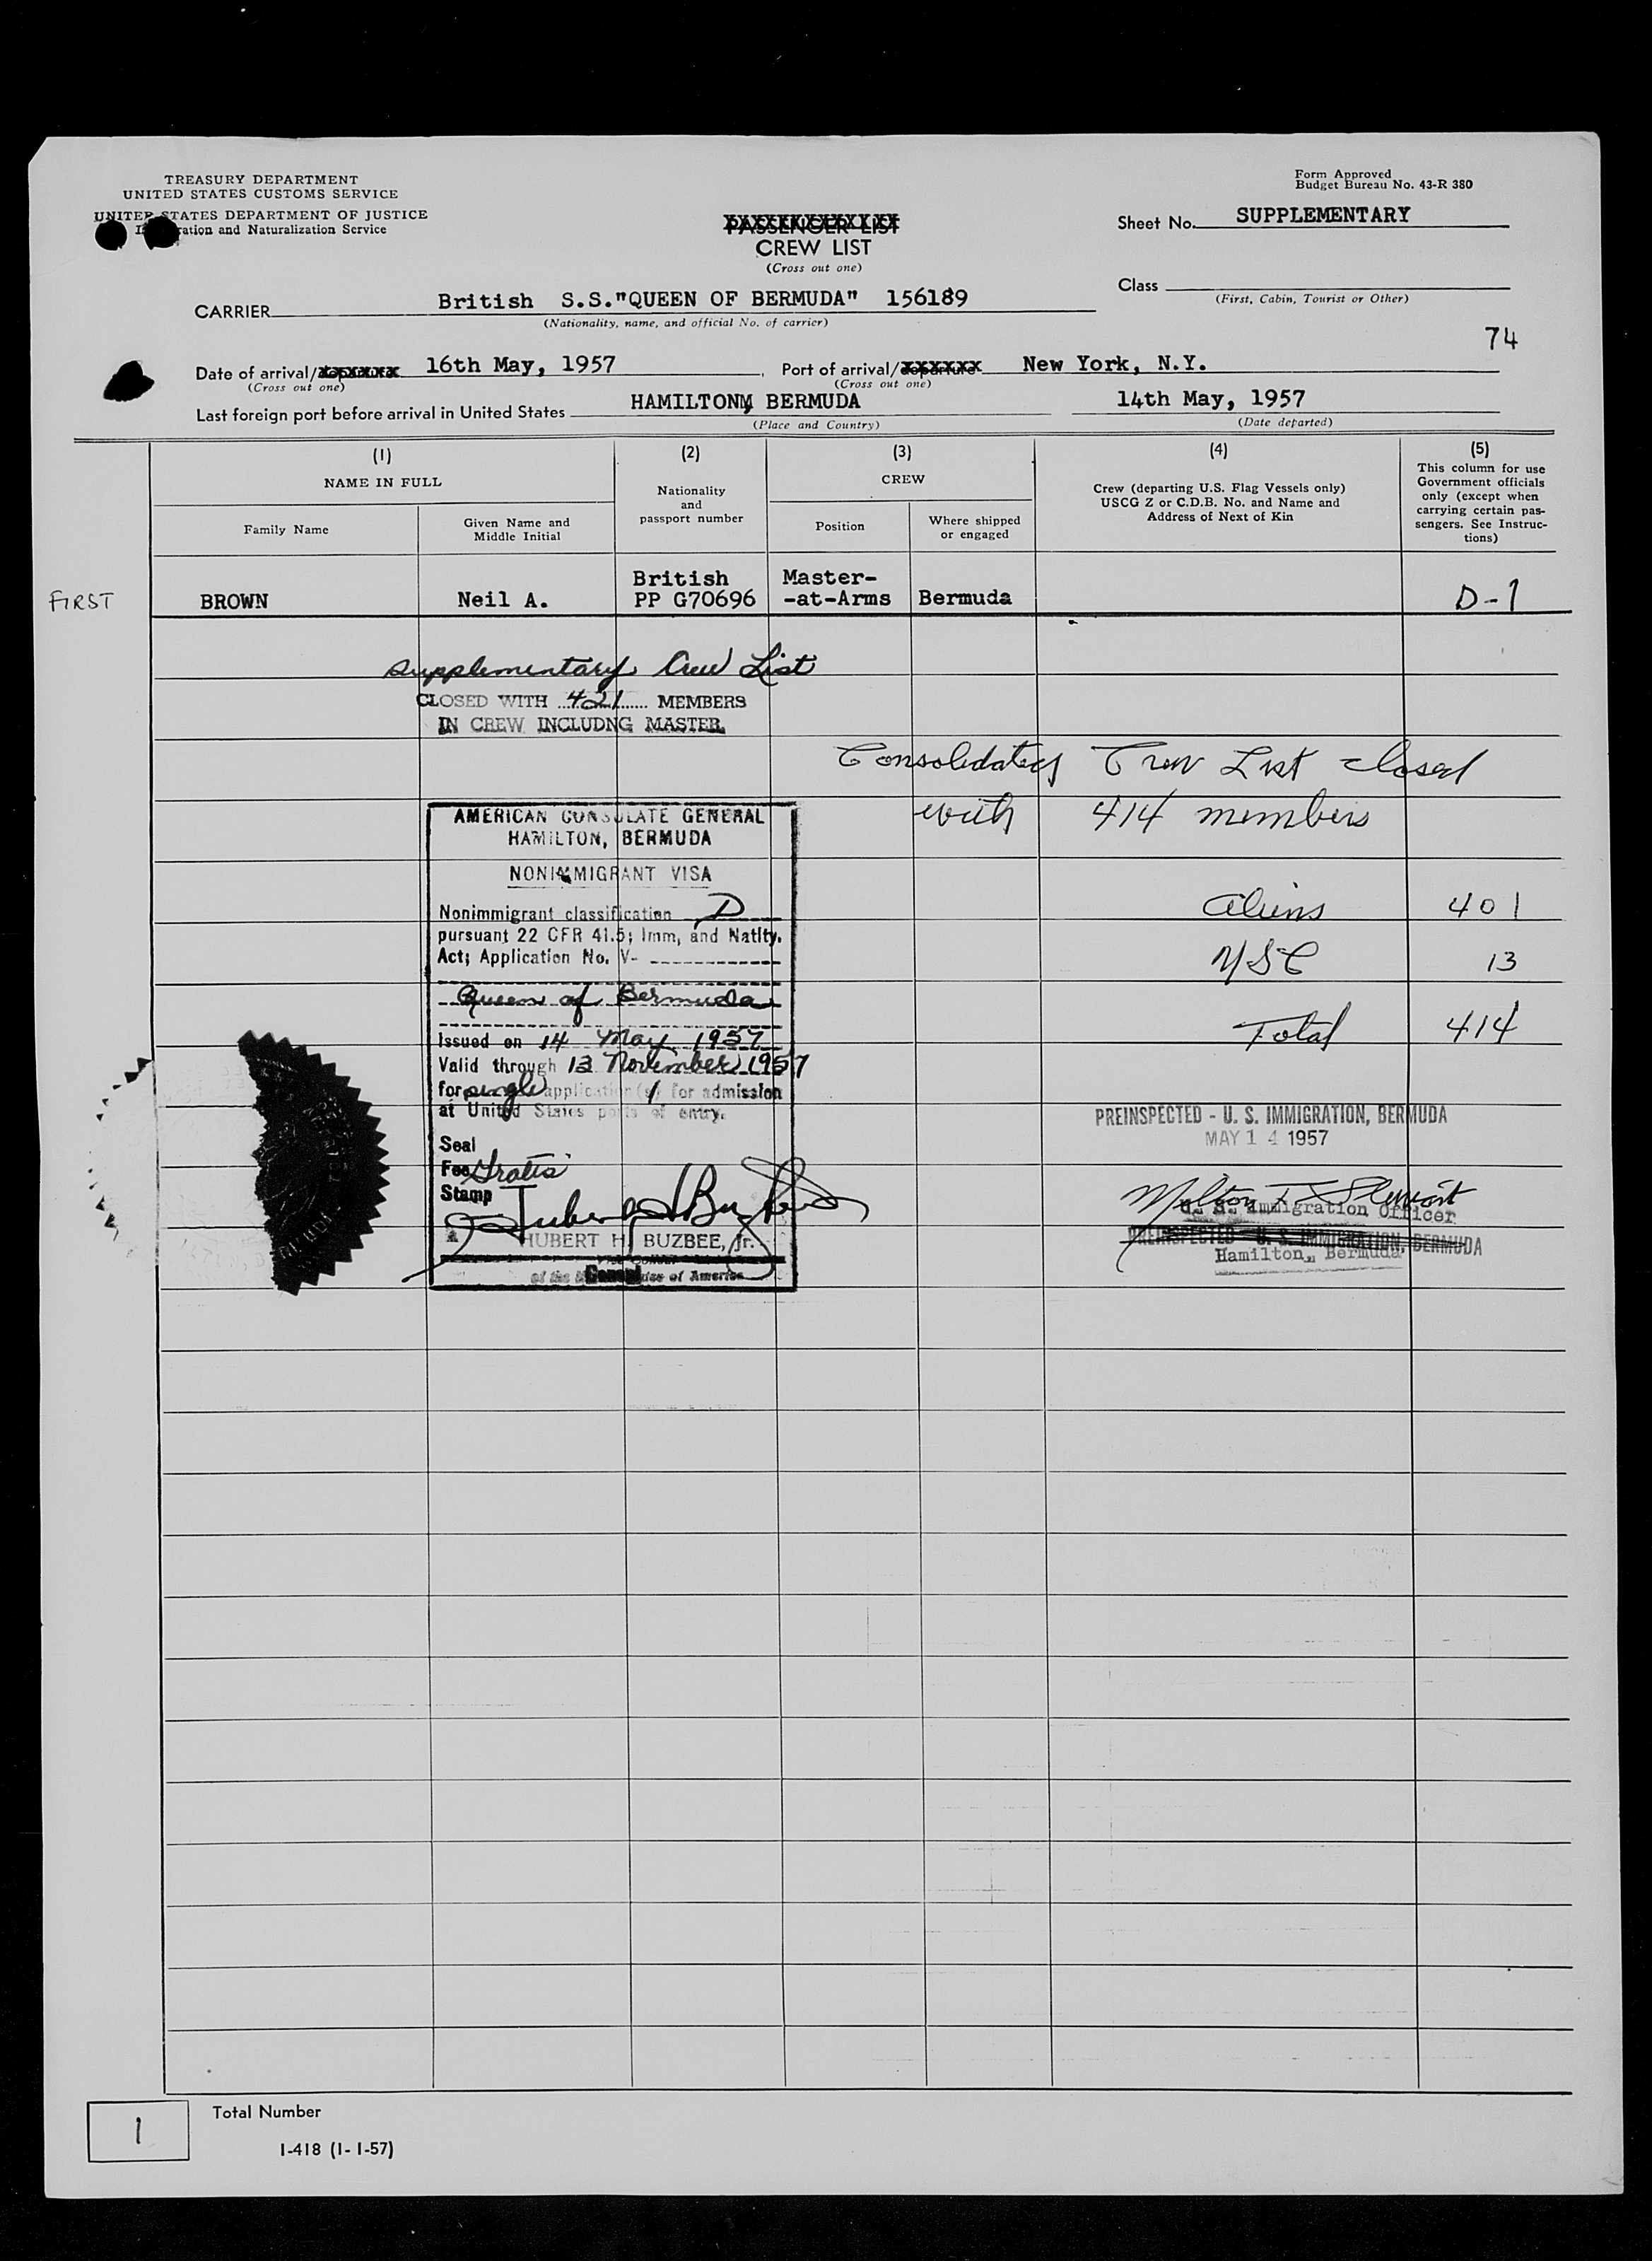 TREASURY DEPARTMENT
UNITED STATES CUSTOMS SERVICE
UNITED STATES DEPARTMENT OF JUSTICE
ration and Naturalization Service
Form Approved
Budget Bureau No. 43-R 380
PASSENGER LIST
CREW LIST
(Cross out one)
Sheet No. SUPPLEMENTARY
Class
(First, Cabin, Tourist or Other)
CARRIER British S.S."QUEEN OF BERMUDA" 156189
(Nationality, name, and official No. of carrier)
74
Date of arrival/departure 16th May, 1957, Port of arrival/departure New York, N.Y.
(Cross out one) (Cross out one)
Last foreign port before arrival in United States HAMILTON, BERMUDA 14th May, 1957
(Place and Country) (Date departed)
(1)
NAME IN FULL
Family Name
Given Name and
Middle Initial
(2)
Nationality
and
passport number
(3)
CREW
Position
Where shipped
or engaged
(4)
Crew (departing U.S. Flag Vessels only)
USCG Z or C.D.B. No. and Name and
Address of Next of Kin
(5)
This column for use
Government officials
only (except when
carrying certain pas-
sengers. See Instruc-
tions)
FIRST BROWN Neil A. British PP G70696 Master- -at-Arms Bermuda D-1
Supplementary Crew List
CLOSED WITH 421 MEMBERS
IN CREW INCLUDNG MASTER
Consolidated Crew List closed
with 414 members
Aliens 401
USC 13
Total 414
AMERICAN CONSULATE GENERAL
HAMILTON, BERMUDA
NONIMMIGRANT VISA
Nonimmigrant classification D
pursuant 22 CFR 41.5; Imm, and Natlty.
Act; Application No. V-
Queen of Bermuda
Issued on 14 May 1957
Valid through 13 November 1957
for single application(s) for admission
at United States ports of entry.
Seal
Fee Gratis
Stamp
HUBERT H. BUZBEE, Jr.
Consul
of the of America
PREINSPECTED - U. S. IMMIGRATION, BERMUDA
MAY 14 1957
U. S. Immigration Officer
PREINSPECTED - U. S. IMMIGRATION, BERMUDA
Hamilton, Bermuda
1
Total Number
I-418 (1-1-57)